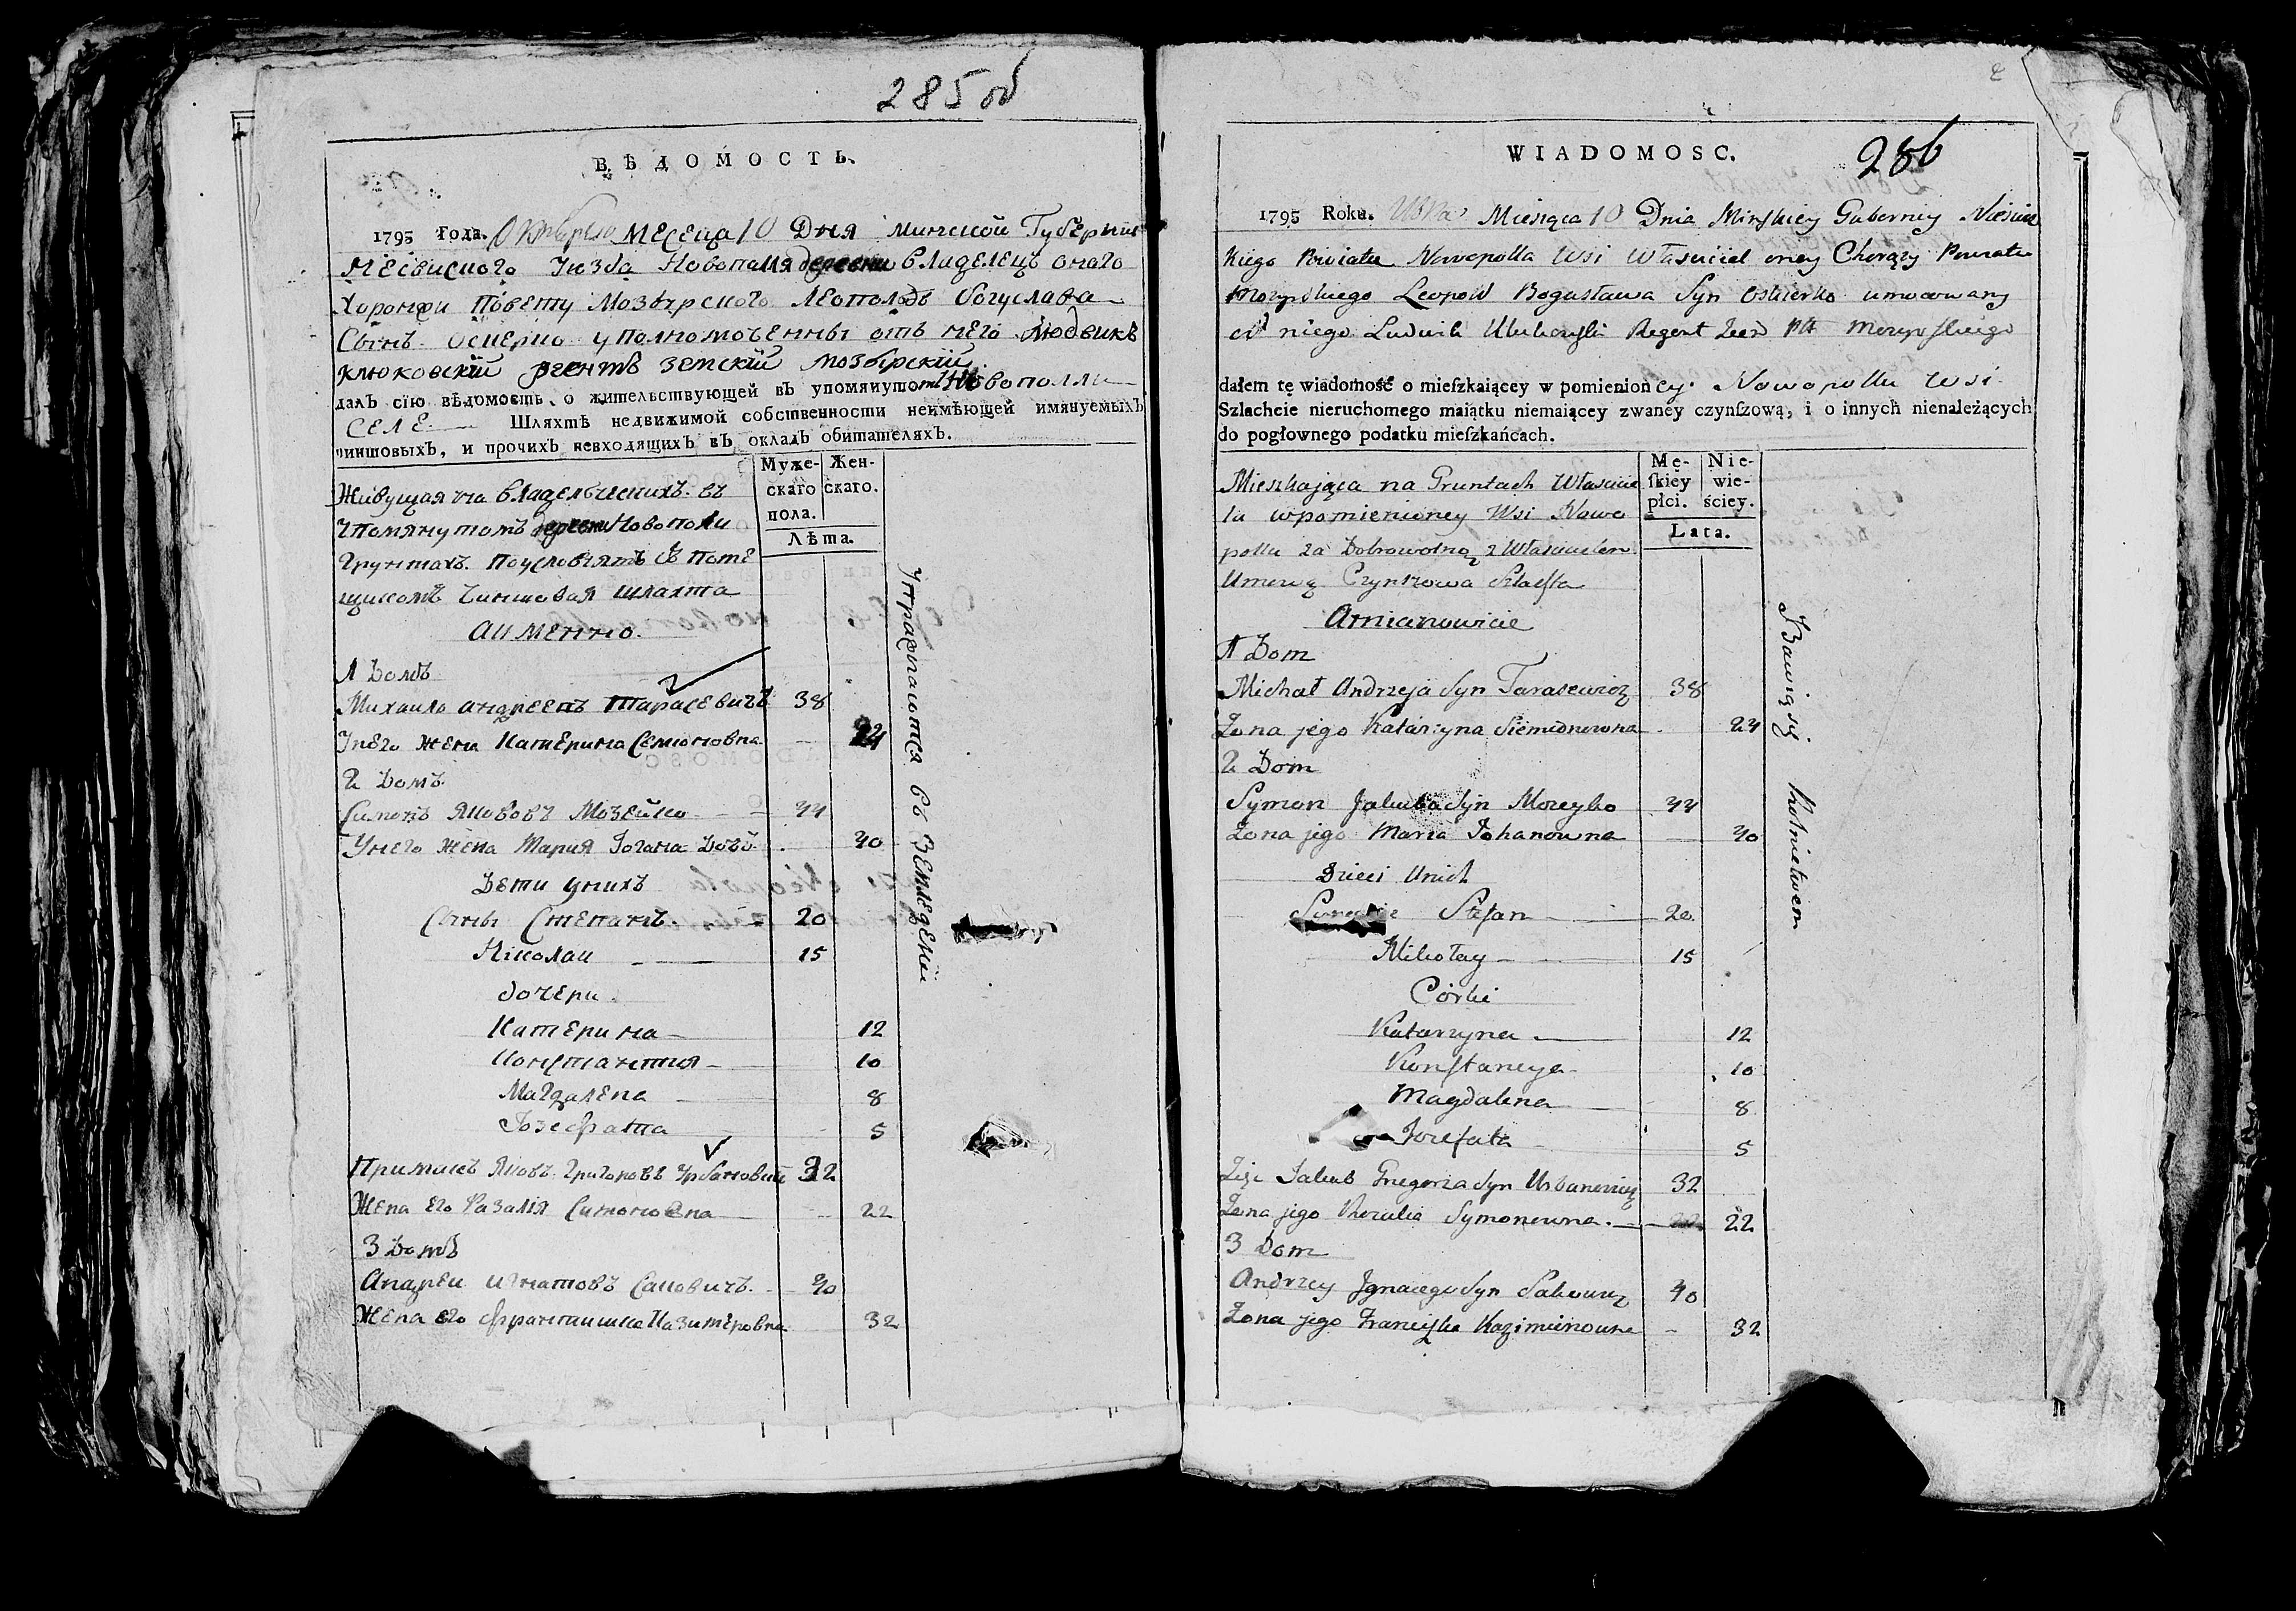 285 об
ВѢДОМОСТЬ.
1795 Года. Октября месеца 10 Дня минской Губерніи
Несвиского Уезда Новополля деревни владелецъ онаго
Хоронжи Повету Мозырского Леопольдъ богуслава
Сынъ Оскерко уполномоченны отъ него людвикъ
клюковскій регентъ земскій мозырскій
далъ сїю вѣдомость о жительствующей въ упомянутомъ Новополли
селе Шляхтѣ недвижимой собственности неимѣющей имянуемыхъ
чиншовыхъ, и прочихъ невходящихъ въ окладъ обитателяхъ.
Муже- Жен-
скаго скаго.
пола.
Лѣта.
Живущая на владельческихъ въ
упомянутомъ деревни Новополи
грунтахъ по условіямъ съ поме
щикомъ чиншовая шляхта
а именно.
1 Домъ
Михаило андреевъ Тарасевичъ 38
У него жена Катерина Семионовна 24
2 Домъ
Симонъ Якововъ Мозейко 44
У него жена Мария Іогана Дово 40
Дети у нихъ
Сыны Степанъ 20
Николаи 15
дочери
Катерина 12
Константия 10
Магдалена 8
Іозефата 5
Примакъ Яковъ Григоровъ Урбановичъ 32
Жена его Разалія Симоновна 22
3 Домъ
Андреи игнатовъ Саковичъ 40
Жена его франтишка Казимеровна 32
Упражнаются въ земледелїи
286
WIADOMOSC.
1795 Roku. Miesiąca 10 Dnia Minskiey Guberniy Nieświz
kiego Powiatu Nowopolla Wsi Własciciel oney Chorąży Powiatu
Mozyrskiego Leopold Bogusława Syn Oskierko umocowany
od niego Ludwik Klukowski Regent Ziem Ptt Mozyrskiego
dałem tę wiadomość o mieſzkaiącey w pomienioncy Nowopollu Wsi
Szlachcie nieruchomego maiątku niemaiącey zwaney czynſzową, i o innych nienależących
do pogłownego podatku mieſzkańcach.
Mę- Nie-
ſkiey wie-
płci. ściey.
Lata.
Mieszkająca na Gruntach Właścicie
la wpomienioney Wsi Nowo
pollu za Dobrowolną z Właścicielem
Umową Czynszowa Szlachta
Amianowicie
1 Dom
Michał Andrzeja Syn Tarasewicz 38
Żona jego Katarzyna Siemionowna 24
2 Dom
Symon Jakuba Syn Mozeyko 44
Żona jego Maria Johanowna 40
Dzieci Unich
Synowie Stefan 20
Mikołay 15
Córki
Katarzyna 12
Konſtancya 10
Magdalena 8
Jozefata 5
Zięć Jakub Gregorza Syn Urbanowicz 32
Żona jego Rozalia Symonowna 22
3 Dom
Andrzey Jgnacego Syn Sakowicz 40
Żona jego Franciſzka Kazimierowna 32
Bawią się Rolnictwem